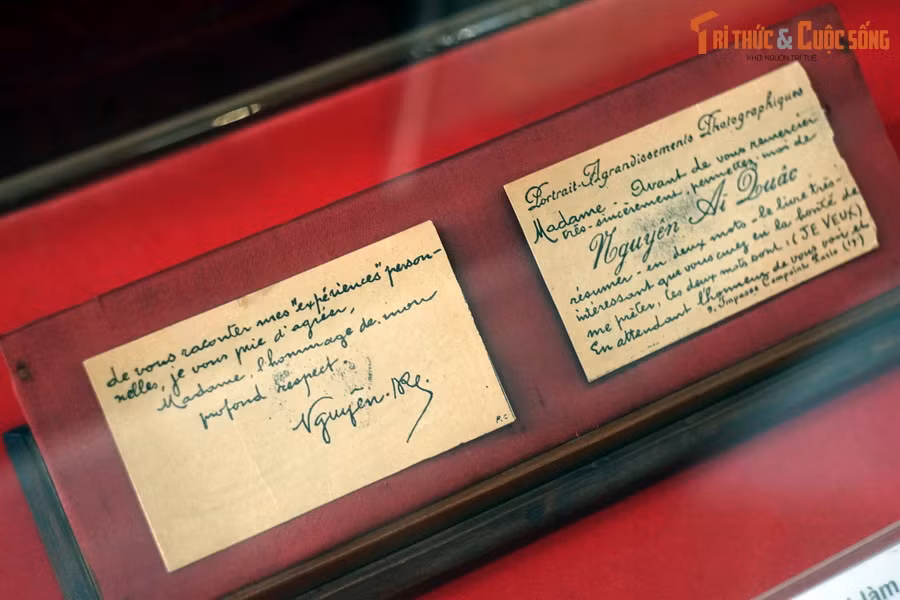 TRI THỨC & CUỘC SỐNG
KHƠI NGUỒN TRI TUỆ
de vous raconter mes "expériences" person-
nelles, je vous prie d'agréer,
Madame, l'hommage de mon
profond respect.
Nguyên
Portrait-Agrandissements Photographiques
Madame. Avant de vous remercier
très-sincèrement, permettez-moi de
Nguyên Ai Quâc
résumer - en deux mots - le livre très-
intéressant que vous avez eu la bonté de
me prêter. Ces deux mots sont: (JE VEUX)
En attendant l'honneur de vous voir et
9, Impasse Compoint Paris (17)
làm